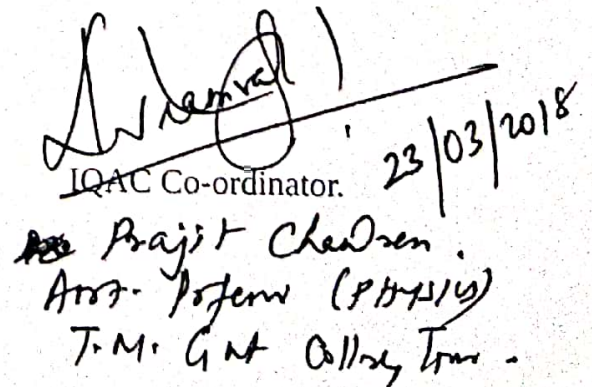 IQAC Co-ordinator.
23/03/2018
Prajit Chandran.
Asst. Professor (Physics)
T.M. Govt College, Tirur.